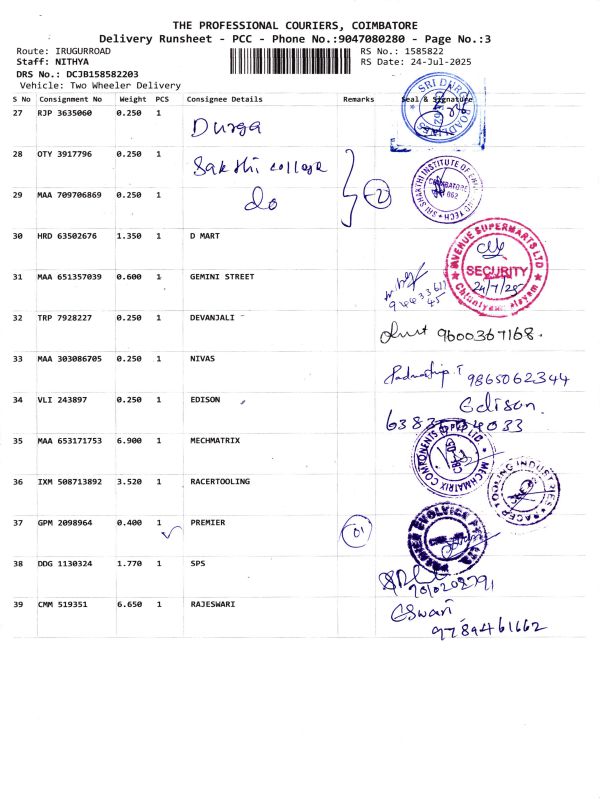 THE PROFESSIONAL COURIERS, COIMBATORE
Delivery Runsheet - PCC - Phone No.:9047080280 - Page No.:3
Route: IRUGURROAD RS No.: 1585822
Staff: NITHYA RS Date: 24-Jul-2025
DRS No.: DCJB158582203
Vehicle: Two Wheeler Delivery
S No Consignment No Weight PCS Consignee Details Remarks Seal & Signature
27 RJP 3635060 0.250 1 Durga
28 OTY 3917796 0.250 1 Sakthi college
29 MAA 709706869 0.250 1 do 2
30 HRD 63502676 1.350 1 D MART
AVENUE SUPERMARTS LTD
SECURITY
24/7/25
31 MAA 651357039 0.600 1 GEMINI STREET
32 TRP 7928227 0.250 1 DEVANJALI 9600367168.
33 MAA 303086705 0.250 1 NIVAS 9865062344
34 VLI 243897 0.250 1 EDISON Edison.
35 MAA 653171753 6.900 1 MECHMATRIX
MECHMATRIX COMPONENTS
36 IXM 508713892 3.520 1 RACERTOOLING
RACER TOOLING INDUSTRIES
37 GPM 2098964 0.400 1 PREMIER 01
38 DDG 1130324 1.770 1 SPS
39 CMM 519351 6.650 1 RAJESWARI Eswari
9789461662